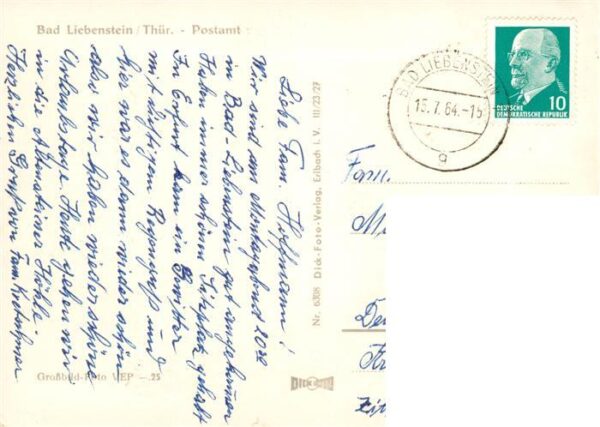 Bad Liebenstein/Thür. - Postamt
Liebe Fam. Hoffmann!
Wir sind am Montagabend 20 30
in Bad-Liebenstein gut angekommen
Haben immer schöne Sitzplatz gehabt
In Erfurt kam ein Gewitter
mit kräftigen Regenguß und
hier war es dann wieder schön
also wir haben wieder schöne
Urlaubstage. Heute gehen wir
in die Altensteiner Höhle.
Herzlichen Gruß von Fam. Kretschmer
Großbild-Foto VEP -.25
Nr. 6308 Dick-Foto-Verlag, Erlbach i. V. III/23/27
DICK
BAD LIEBENSTEIN
15.7.64.-15
a
DEUTSCHE
DEMOKRATISCHE REPUBLIK
10
Fam.